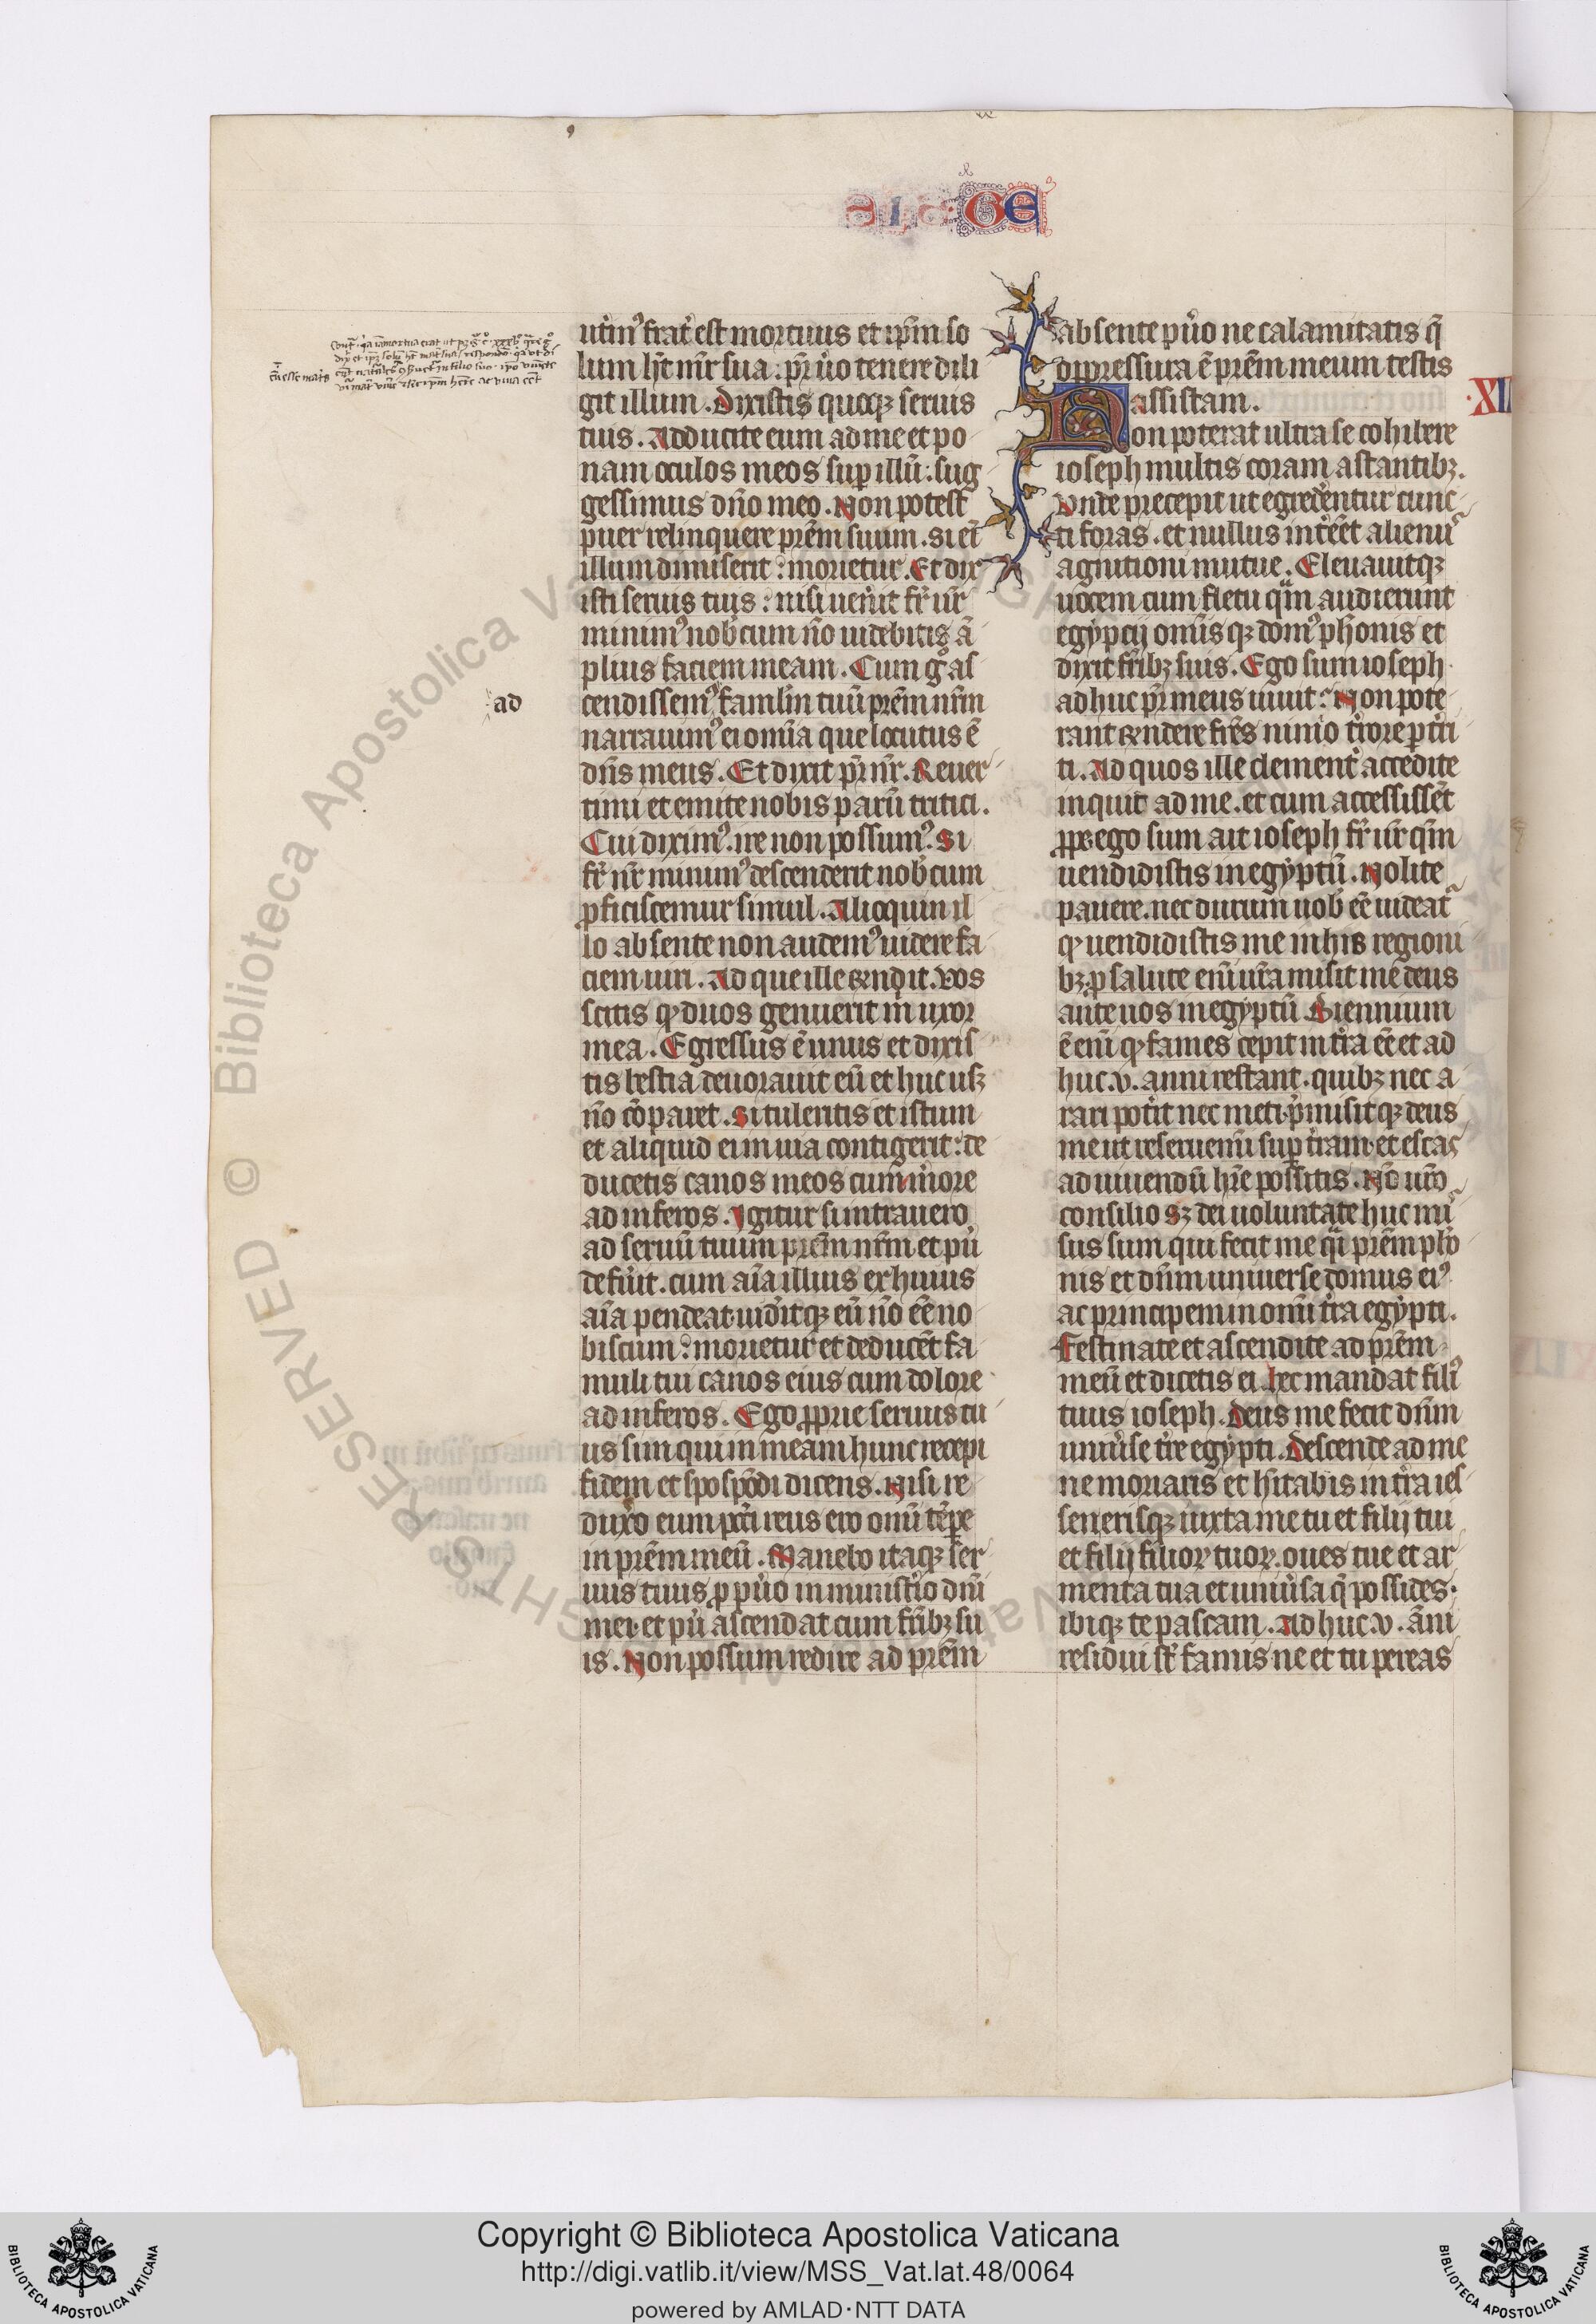 GE
utim᷒ frat̉ est mortuus et ip̄m so
lum h̄t mr̄ sua. pr̄ u̓o tenere dili
git illum. Dixistis quoqꝫ seruis
tuis. Adducite eum ad me et po
nam oculos meos sup illū: sug
gessimus dn̄o meo. Non potest
puer relinquere prēm suum. si et̄
illum dimiserit: morietur. Et dix
isti seruis tuis: nisi uen̓it fr̄ ur̄
minim᷒ nob̓cum n̄o uidebitis ā
plius faciem meam. Cum gͦ as
cendissem᷒ famlm̄ tuū prēm nrm̄
narrauim᷒ ei om̄ia que locutus ē
dn̄s meus. Et dixit pr̄ nr̄. Reuer
timi et emite nobis parū tritici.
Cui dixim᷒. ire non possum᷒. Si
fr̄ nr̄ minim᷒ descenderit nob̓cum
ꝓficiscemur simul. Alioquin il
lo absente non audem᷒ uidere fa
ciem uiri. Ad que ille rn̄dit. Vos
scitis ꝙ duos genuerit m̄ uxor
mea. Egressus ē unus et dixis
tis bestia deuorauit eū et huc usꝫ
n̄o cōparet. Si tuleritis et istum
et aliquid ei in uia contigerit: de
ducetis canos meos cum m̓ore
ad inferos. Igitur si intrauero
ad seruū tuum prēm nrm̄ et pu̓
defu̓it. cum aīa illius ex huius
aīa pendeat uid̓itqꝫ eū n̄o eē no
biscum: morietur et deducēt fa
muli tui canos eius cum dolore
ad inferos. Ego ꝓprie seruus tu
us sim qui in meam hunc recepi
fidem et spospōdi dicens. Nisi re
duxo eum pctī reus ero om̄i tēpre
in prēm meū. Manebo itaqꝫ ser
uus tuus ꝓ pu̓o in minist̓io dnī
mei. et pu̓ ascendat cum fr̄ibꝫ su
is. Non possum redire ad prēm
ad
absente pu̓o ne calamitatis q̄
oppressura ē prēm meum testis
assistam.
XL
Non poterat ultra se cohibere
ioseph multis coram astantibꝫ.
Vnde precepit ut egred̓entur cunc
ti foras. et nullus int̓eēt alienu᷒
agnitioni mutue. Eleuauitqꝫ
uocem cum fletu q̄m audierunt
egyptij om̄is qꝫ dom᷒ ph̄onis et
dixit fr̄ibꝫ suis. Ego sum ioseph
adhuc pr̄ meus uiuit: Non pote
rant rn̄dere frēs nimio t̓rore ꝑt̓ri
ti. Ad quos ille clement̓ accedite
inquit ad me. et cum accessissēt
ꝓpe ego sum ait ioseph fr̄ ur̄ q̄m
uendidistis in egyptū. Nolite
pauere. nec durum uob̓ eē uideat᷒
ꝙ uendidistis me in his regioni
bꝫ ꝓ salute enī ur̄a misit me deus
ante uos in egyptū Biennium
ē enī ꝙ fames cepit in t̓ra eē et ad
huc .v. anni restant. quibꝫ nec a
rari pot̓it nec meti. p̓misitqꝫ deus
me ut reseruemī sup t̓ram. et escas
ad uiuendū hr̄e possitis. Nō ur̄o
consilio sꝫ dei uoluntate huc mi᷒
sus sum qui fecit me q̄i prēm ph̄o
nis et dn̄m uniuerse domus ei᷒
ac principem in om̄i t̓ra egypti.
Festinate et ascendite ad prēm
meū et dicetis ei. hec mandat fili᷒
tuus ioseph. Deus me fecit dn̄m
uniu̓se t̓re egypti. Descende ad me
ne moriaris et h̄itabis in t̓ra ies
sen erisqꝫ iuxta me tu et filij tui
et filij filioꝝ tuoꝝ. oues tue et ar
menta tua et uniu̓sa q̄ possides.
ibiqꝫ te pascam. Adhuc .v. āni
residui st̄ famis ne et tu pereas
© Biblioteca Apostolica Vaticana
RIGHTS RESERVED
Copyright © Biblioteca Apostolica Vaticana
http://digi.vatlib.it/view/MSS_Vat.lat.48/0064
powered by AMLAD·NTT DATA
BIBLIOTECA APOSTOLICA VATICANA
BIBLIOTECA APOSTOLICA VATICANA